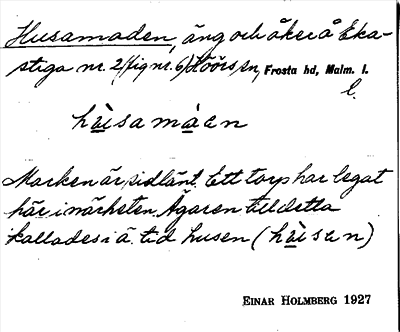 Husamaden, äng och åker å Eka-
stiga nr. 2, (fig nr. 6) Höörs sn, Frosta hd, Malm. l.
hàisamàen
Marken är sidlänt. Ett torp har legat
här i närheten. Ägaren till detta
kallades i ä. tid husen (hàisun)
EINAR HOLMBERG 1927